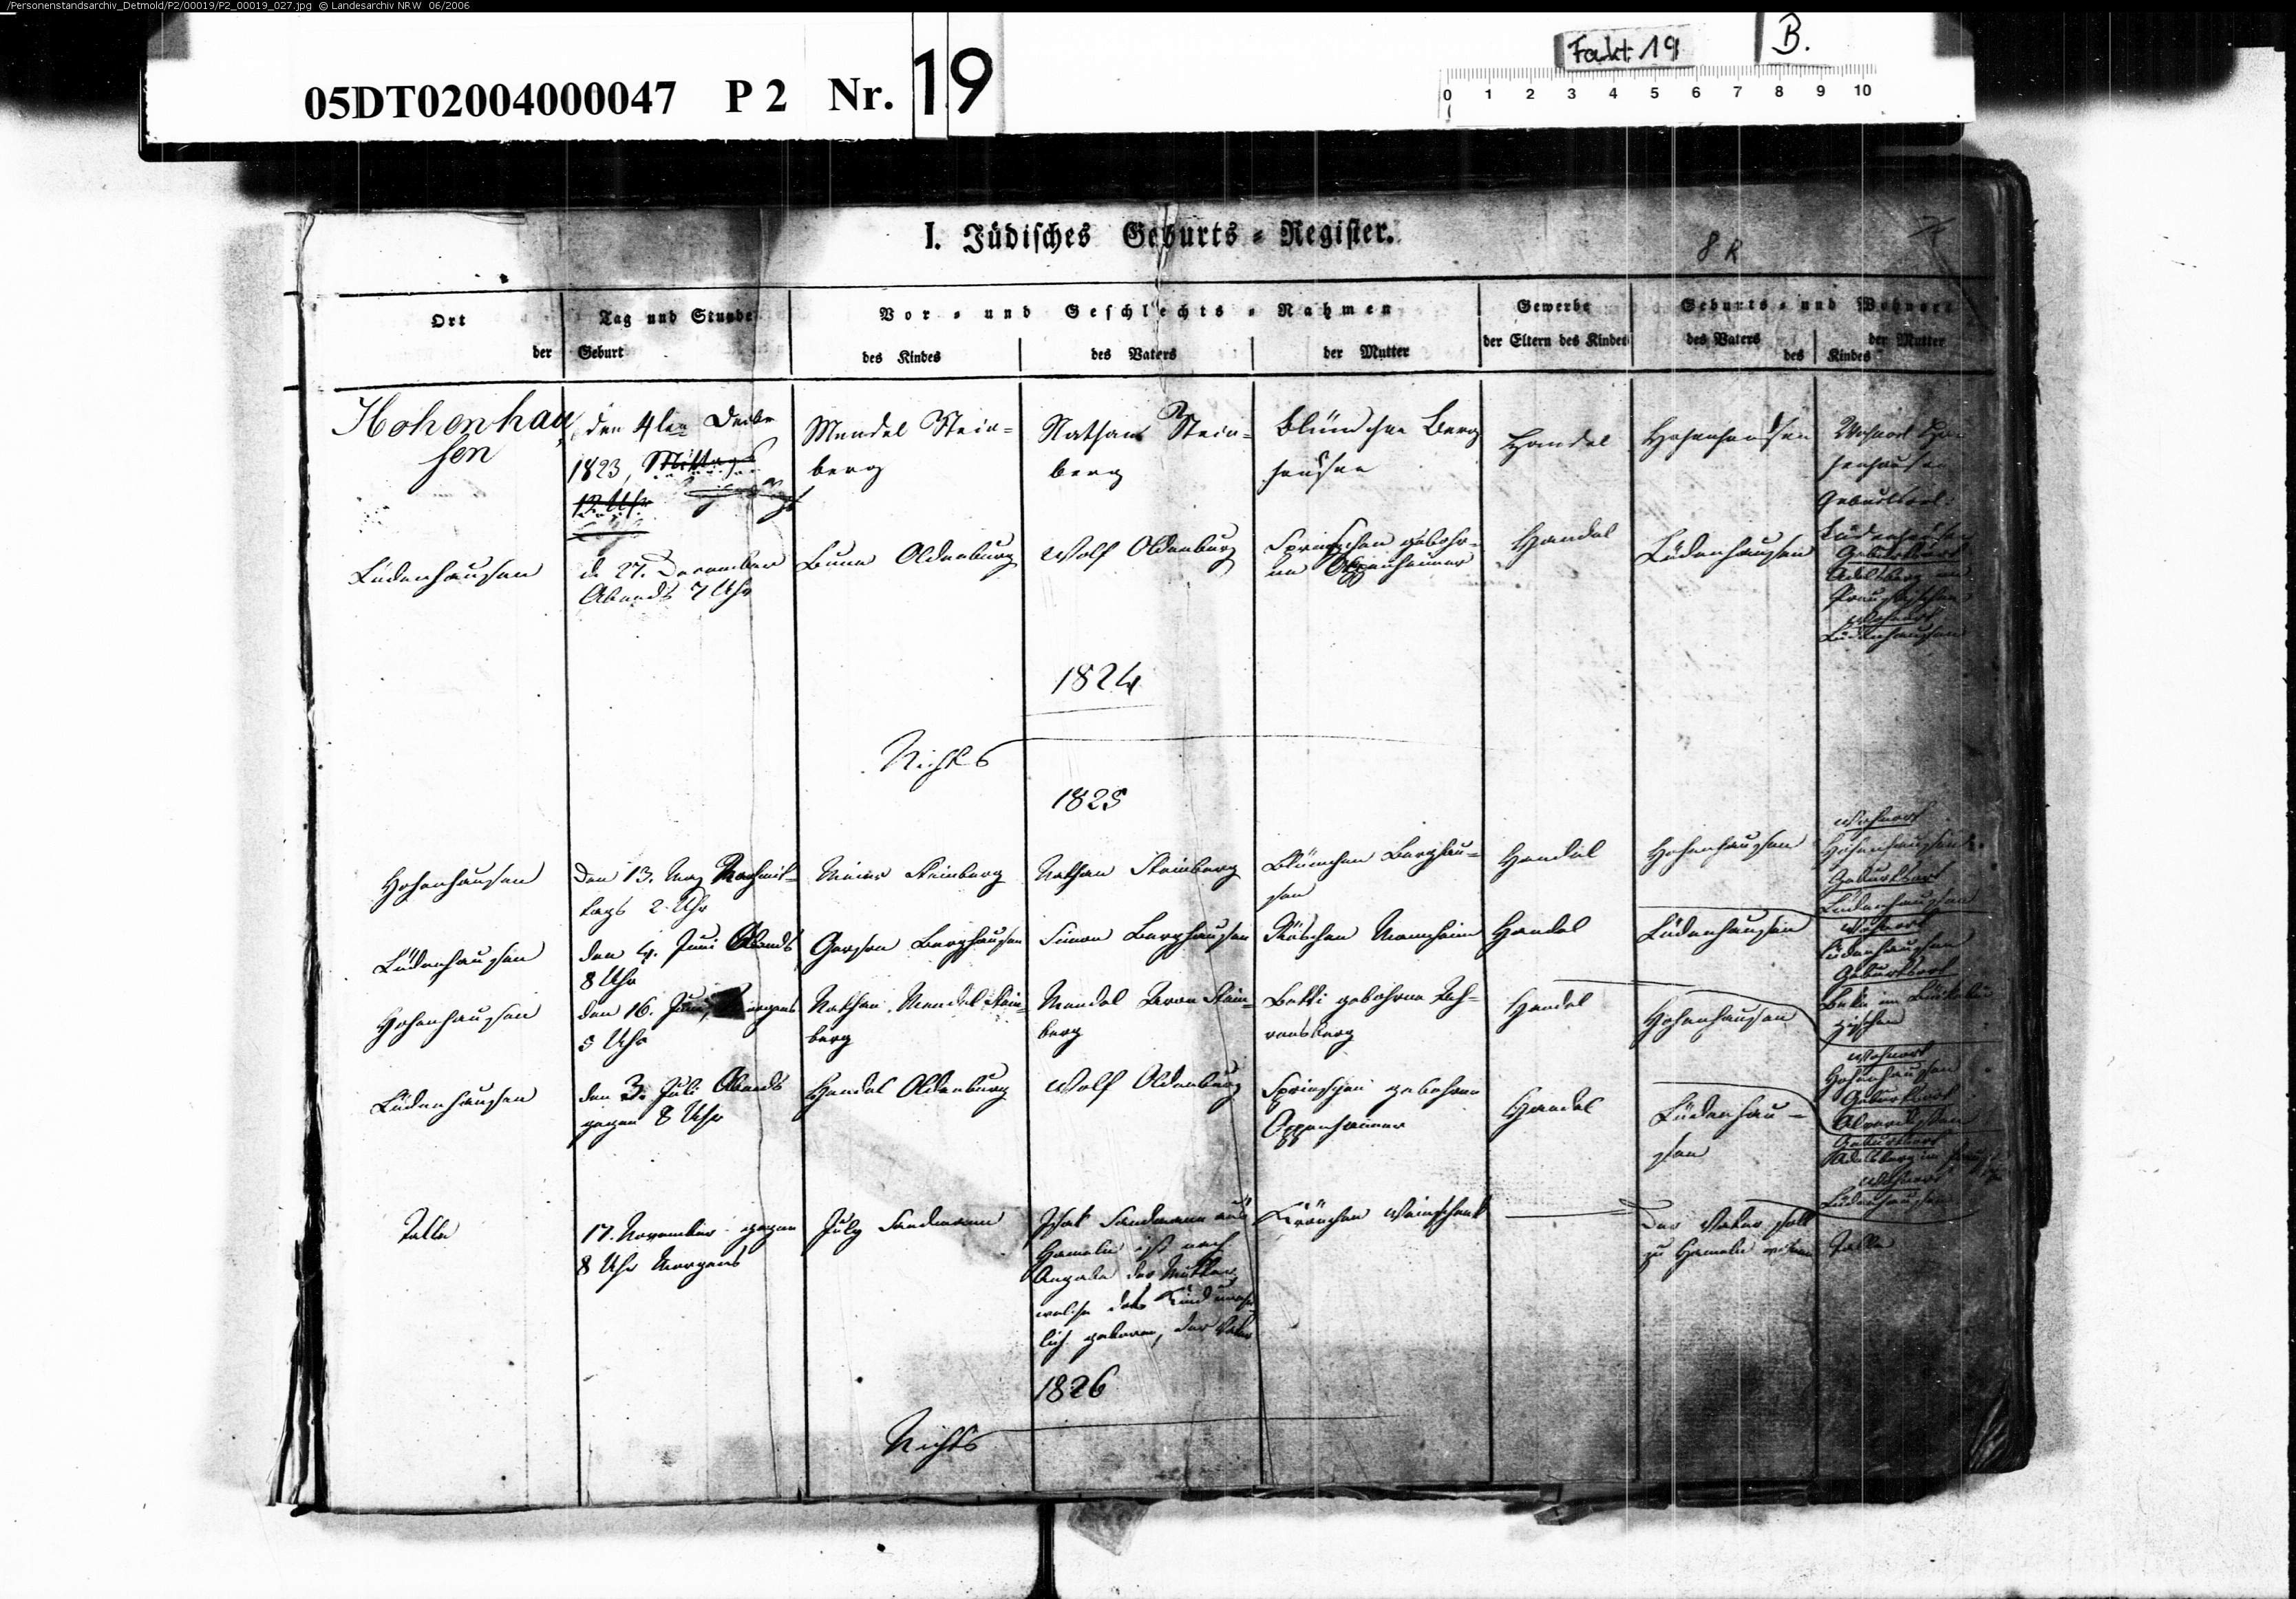 /Personenstandsarchiv_Detmold/P2/00019/P2_00019_027.jpg © Landesarchiv NRW 06/2006
05DT02004000047 P 2 Nr. 19
Fakt. 19 B.
0 1 2 3 4 5 6 7 8 9 10
I. Jüdisches Geburts-Register.
8 R
Ort der Geburt
Tag und Stunde
Vor- und Geschlechts-Nahmen
des Kindes
des Vaters
der Mutter
Gewerbe
der Eltern des Kindes
Geburts- und Wohnort
des Vaters
der Mutter
des Kindes
Hohenhau
sen
den 4ten Decbr
1823, Mittags
12 Uhr
Mendel Stein-
berg
Nathan Stein-
berg
Blümchen Berg
hausen
Handel
Hohenhausen
Wohnort Ho-
henhausen
Geburtsort
Lüdenhausen
Lüdenhausen
d. 27. December
Abends 7 Uhr
Oldenburg
Wolf Oldenburg
Sprinzchen gebohr-
ne Oppenheimer
Handel
Lüdenhausen
Geburtsort
Adelsberg im
Preussischen
Wohnort
Lüdenhausen
1824
Nichts
1825
Hohenhausen
Den 13. May Nachmit-
tags 2 Uhr
Meier Steinberg
Nathan Steinberg
Blümchen Berghau-
sen
Handel
Hohenhausen
Wohnort
Hohenhausen
Geburtsort
Lüdenhausen
Lüdenhausen
den 4. Juni Abends
8 Uhr
Gerson Berghausen
Simon Berghausen
Röschen Mannheim
Handel
Lüdenhausen
Wohnort
Lüdenhausen
Geburtsort
Hohenhausen
den 16. Juni, Morgens
5 Uhr
Nathan Mendel Stein-
berg
Mendel Aron Stein-
berg
Betti gebohrne
Handel
Hohenhausen
Wohnort
Hohenhausen
Geburtsort
Alverdissen
Lüdenhausen
den 3. Juli Abends
gegen 8 Uhr
Handel Oldenburg
Wolf Oldenburg
Sprinzchen gebohrne
Oppenheimer
Handel
Lüdenhau-
sen
Geburtsort
Adelsberg im
Wohnort
Lüdenhausen
Talle
17. November gegen
8 Uhr Morgens
July Sandmann
Isak Sandmann aus
Hameln ist nach
Angabe der Mutter,
welche das Kind unehe-
lich geboren, der Vater
Weinschenk
Der Vater soll
zu Hameln wohnen
Talle
1826
Nichts